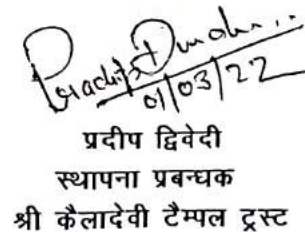 01/03/22
प्रदीप द्विवेदी
स्थापना प्रबन्धक
श्री कैलादेवी टैम्पल ट्रस्ट